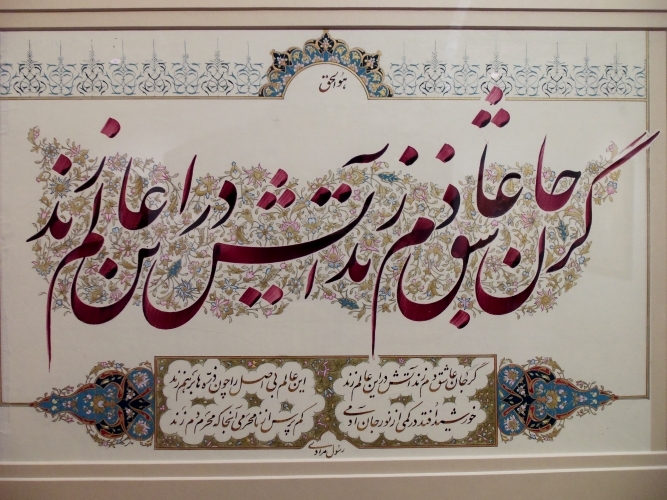 هو الحق
گر جان عاشق دم زند آتش در این عالم زند
گر جان عاشق دم زند آتش در این عالم زند این عالم بی اصل را چون ذره ها برهم زند
خورشید افتد در کمی از نور جان آدمی کم پرس از نامحرمی آنجا که محرم دم زند
رسول مرادی